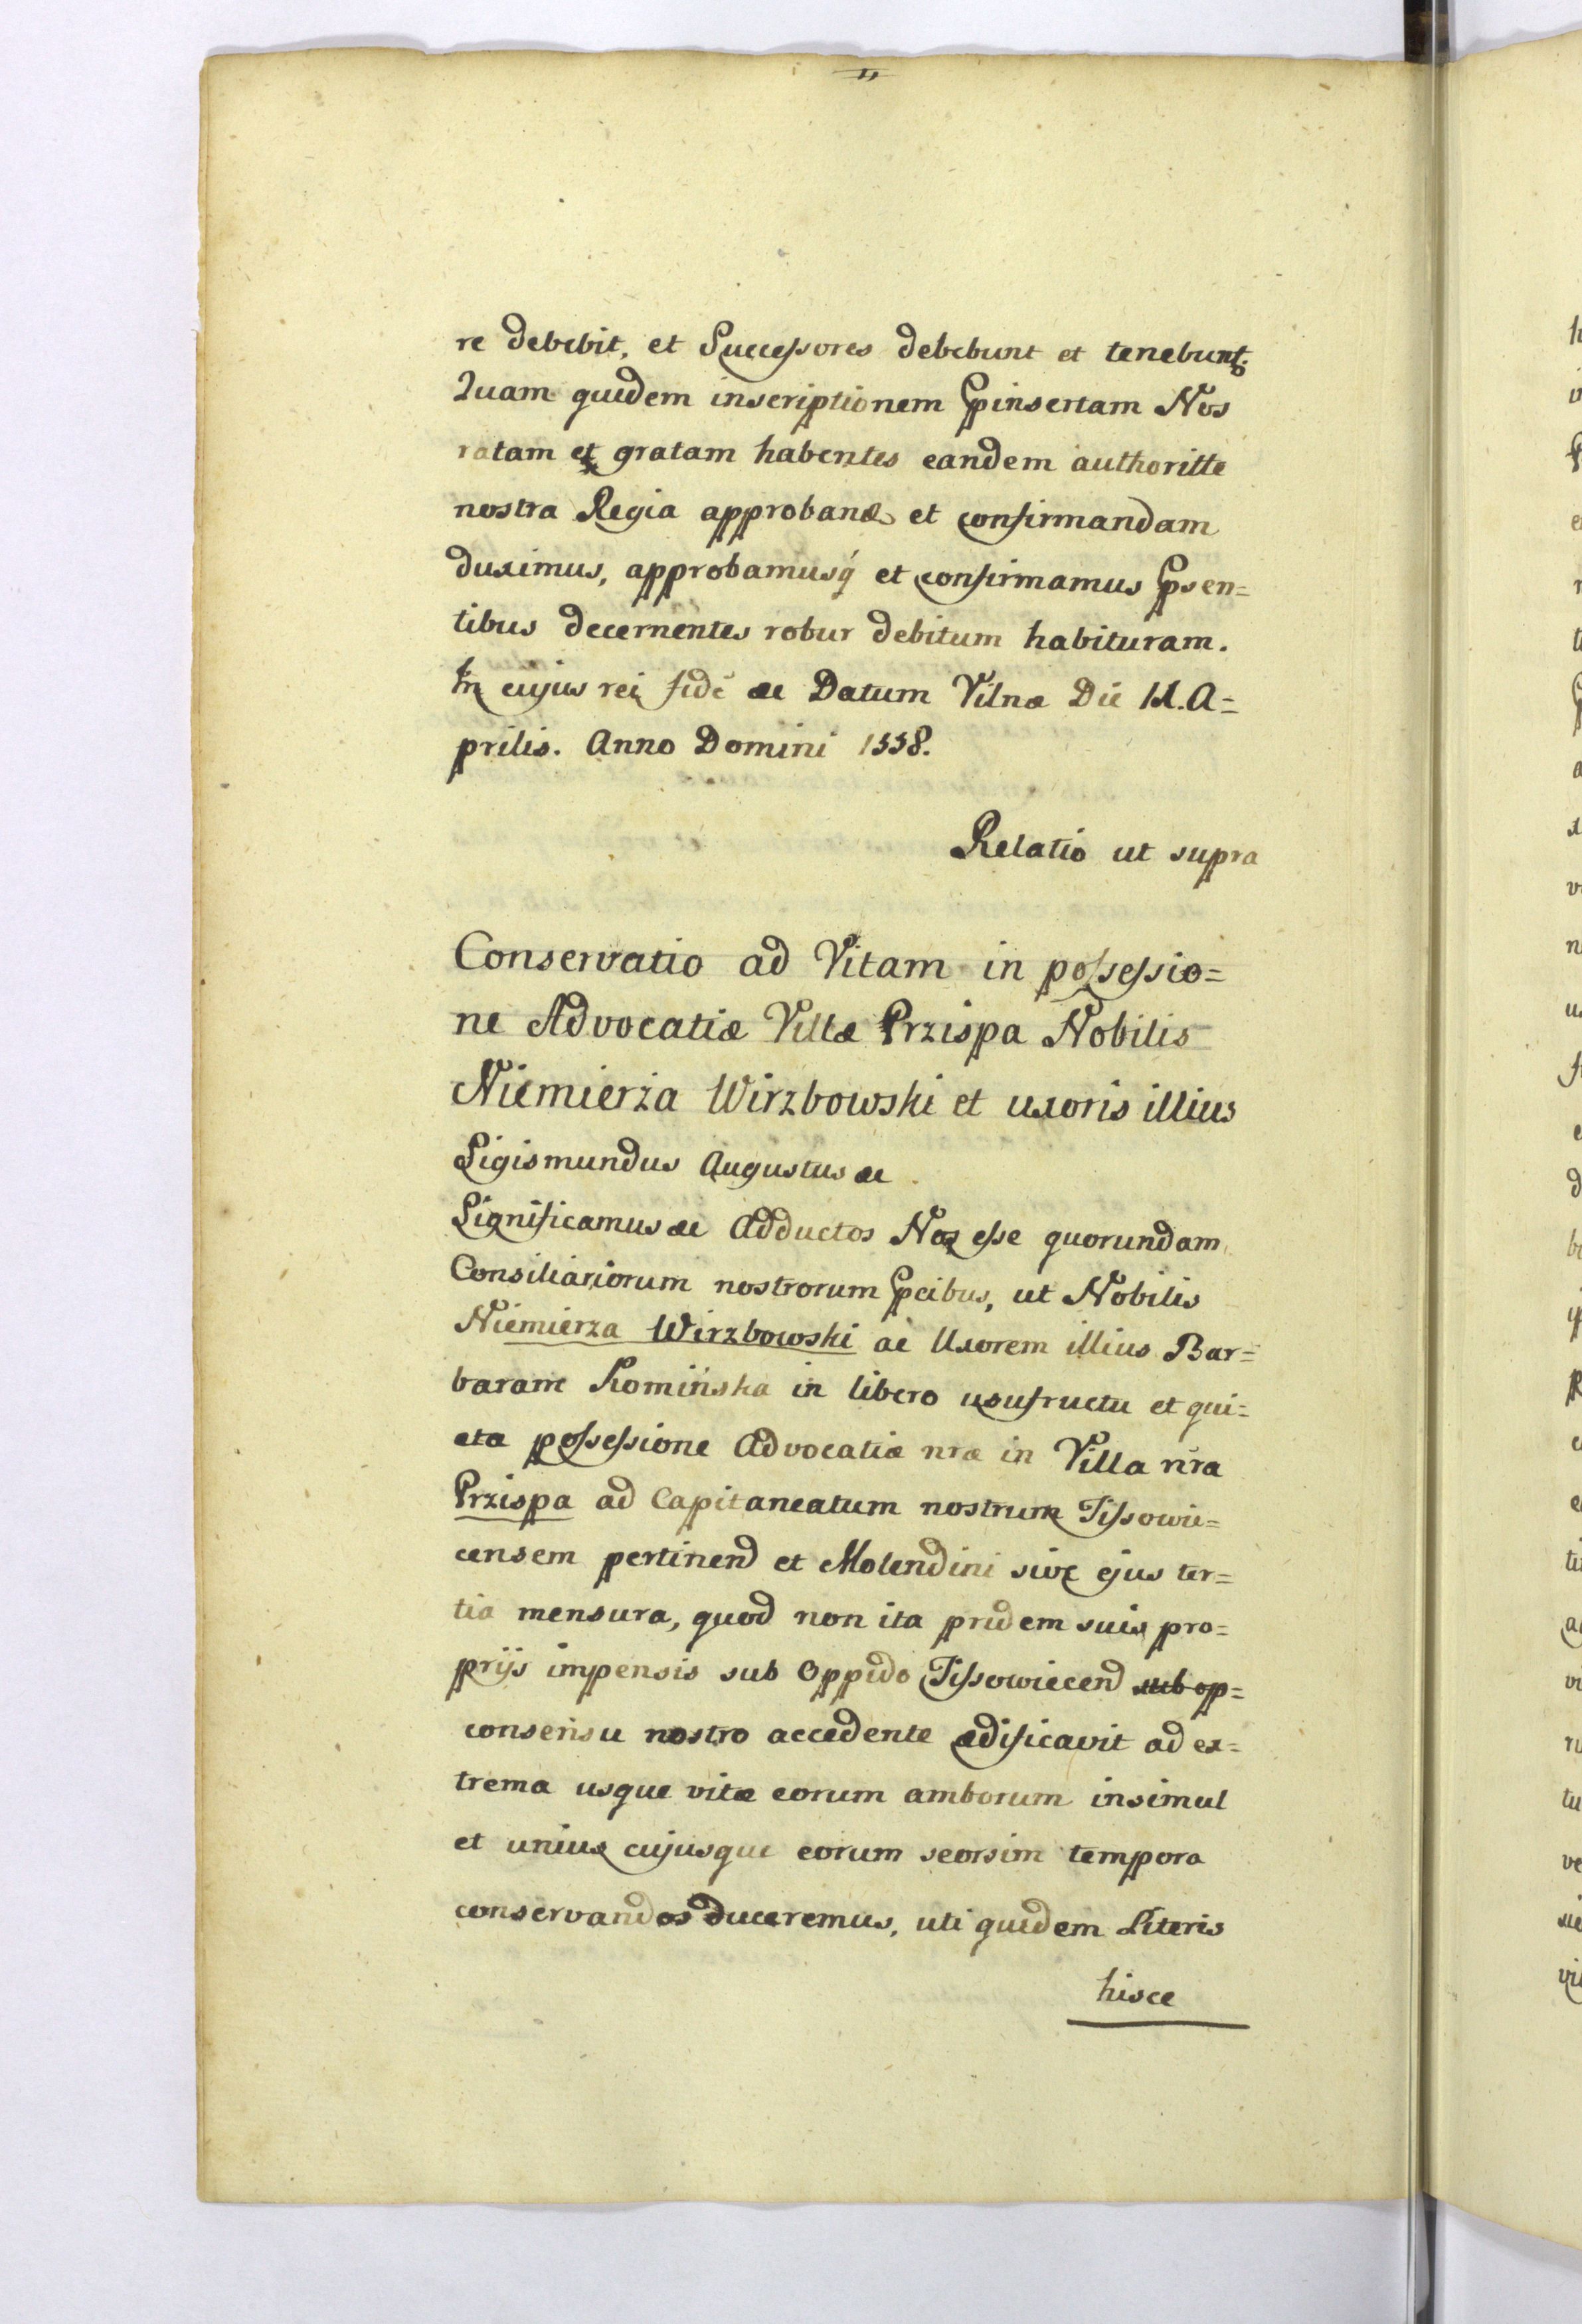 re debebit, et Successores debebunt et tenebunt.
Quam quidem inscriptionem pinsertam Nos
ratam et gratam habentes eandem authoritte
nostra Regia approband et confirmandam
duximus, approbamusq́ et confirmamus psen=
tibus decernentes robur debitum habituram.
In cujus rei fidē ac Datum Vilnæ Die 14. A=
prilis. Anno Domini 1558.
Relatio ut supra
Conservatio ad Vitam in possessio=
ne Advocatiæ Villæ Przispa Nobilis
Niemierza Wirzbowski et uxoris illius
Sigismundus Augustus ac
Significamus ac Adductos Nos esse quorundam
Consiliariorum nostrorum pcibus, ut Nobilis
Niemierza Wirzbowski ac Uxorem illius Bar=
baram Komińska in libero usufructu et qui=
eta possessione Advocatiæ nræ in Villa nr̃a
Przispa ad Capitaneatum nostrum Tissowie=
censem pertinend et Molendini sive ejus ter=
tia mensura, quod non ita pridem suis pro=
prijs impensis sub Oppido Tissowiecend sub op=
consensu nostro accedente ædificavit ad ex=
trema usque vitæ eorum amborum insimul
et unius cujusque eorum seorsim tempora
conservandos duceremus, uti quidem Literis
hisce